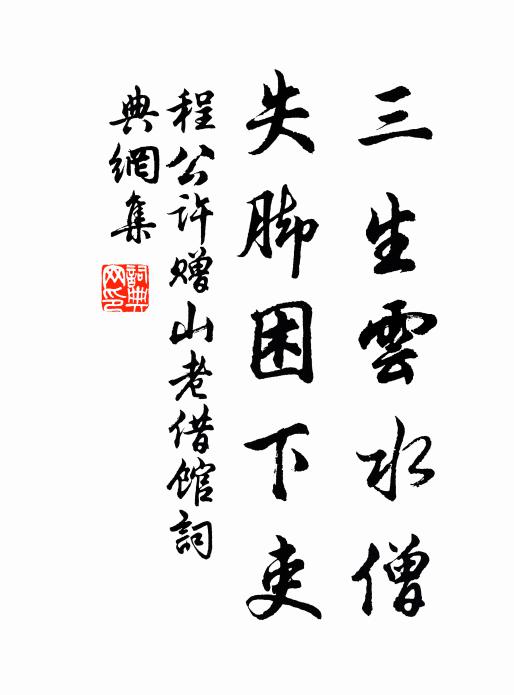 三生雲水僧
失脚困下吏
程公許贈山老借館詞
典網集
詞典網印